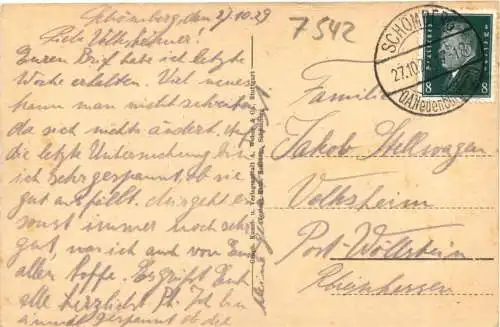 Schömberg, den 27.10.29
Liebe Volksheimer!
Euren Brief habe ich letzte
Woche erhalten. Viel neues
kann man nicht schreiben
da sich nichts ändert. Auf
die letzte Untersuchung bin
ich sehr gespannt ob sie
gut ausfällt. Mir geht es
sonst immer noch sehr
gut, was ich auch von Euch
allen hoffe. Es grüßt Euch
alle herzlichst Ph. Ich bin
einmal gespannt ob die
7542
SCHÖMBERG
27.10.
8 8
Familie
Jakob Stellwagen
Volksheim
Post Wöllstein
Rheinhessen